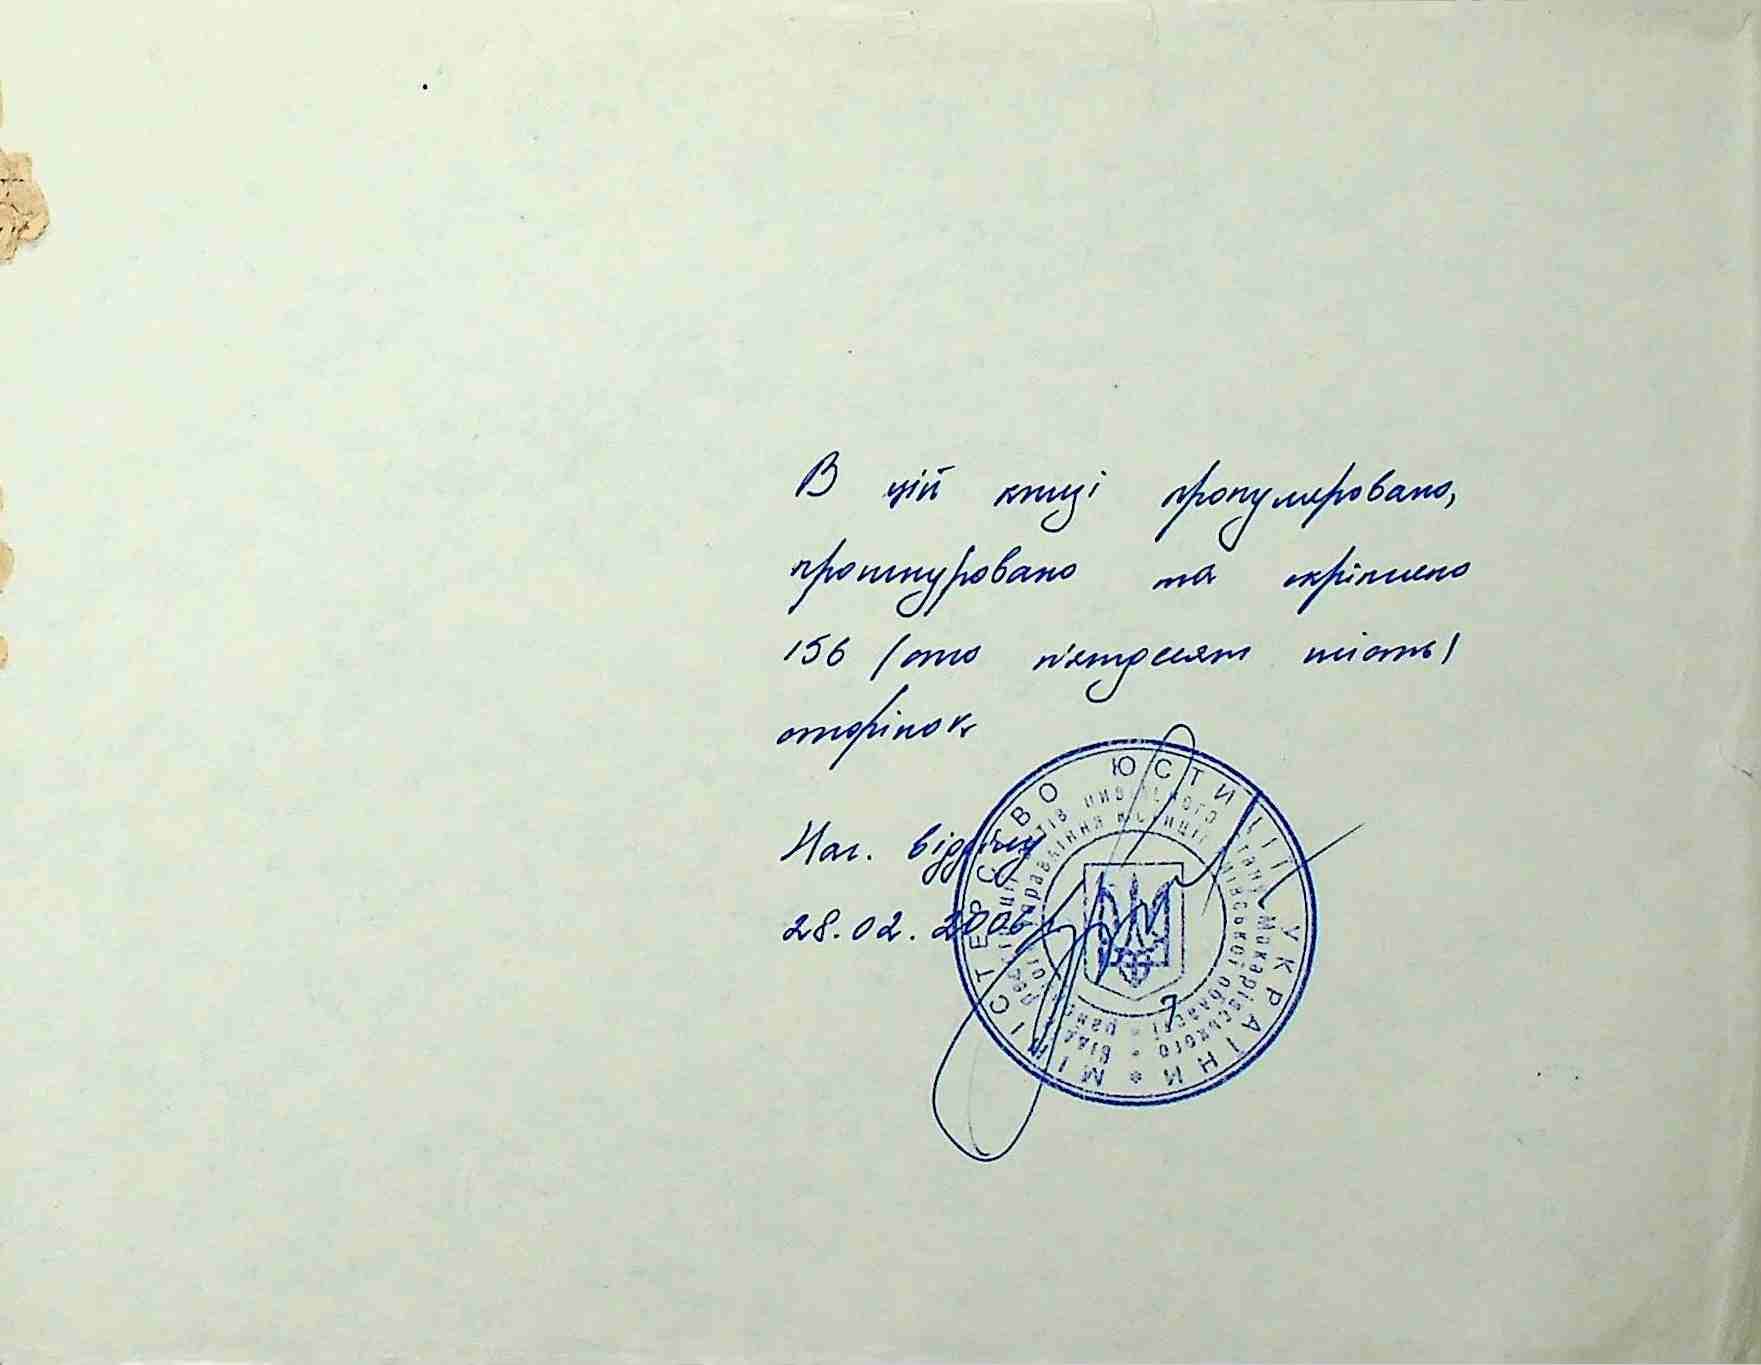 В цій книзі пронумеровано,
прошнуровано та скріплено
156 /сто п'ятдесят шість/
сторінок
Нач. відділу
28.02.2006
МІНІСТЕРСТВО ЮСТИЦІЇ УКРАЇНИ *
Відділ реєстрації актів цивільного стану Макарівського
управління юстиції Київської області *
7